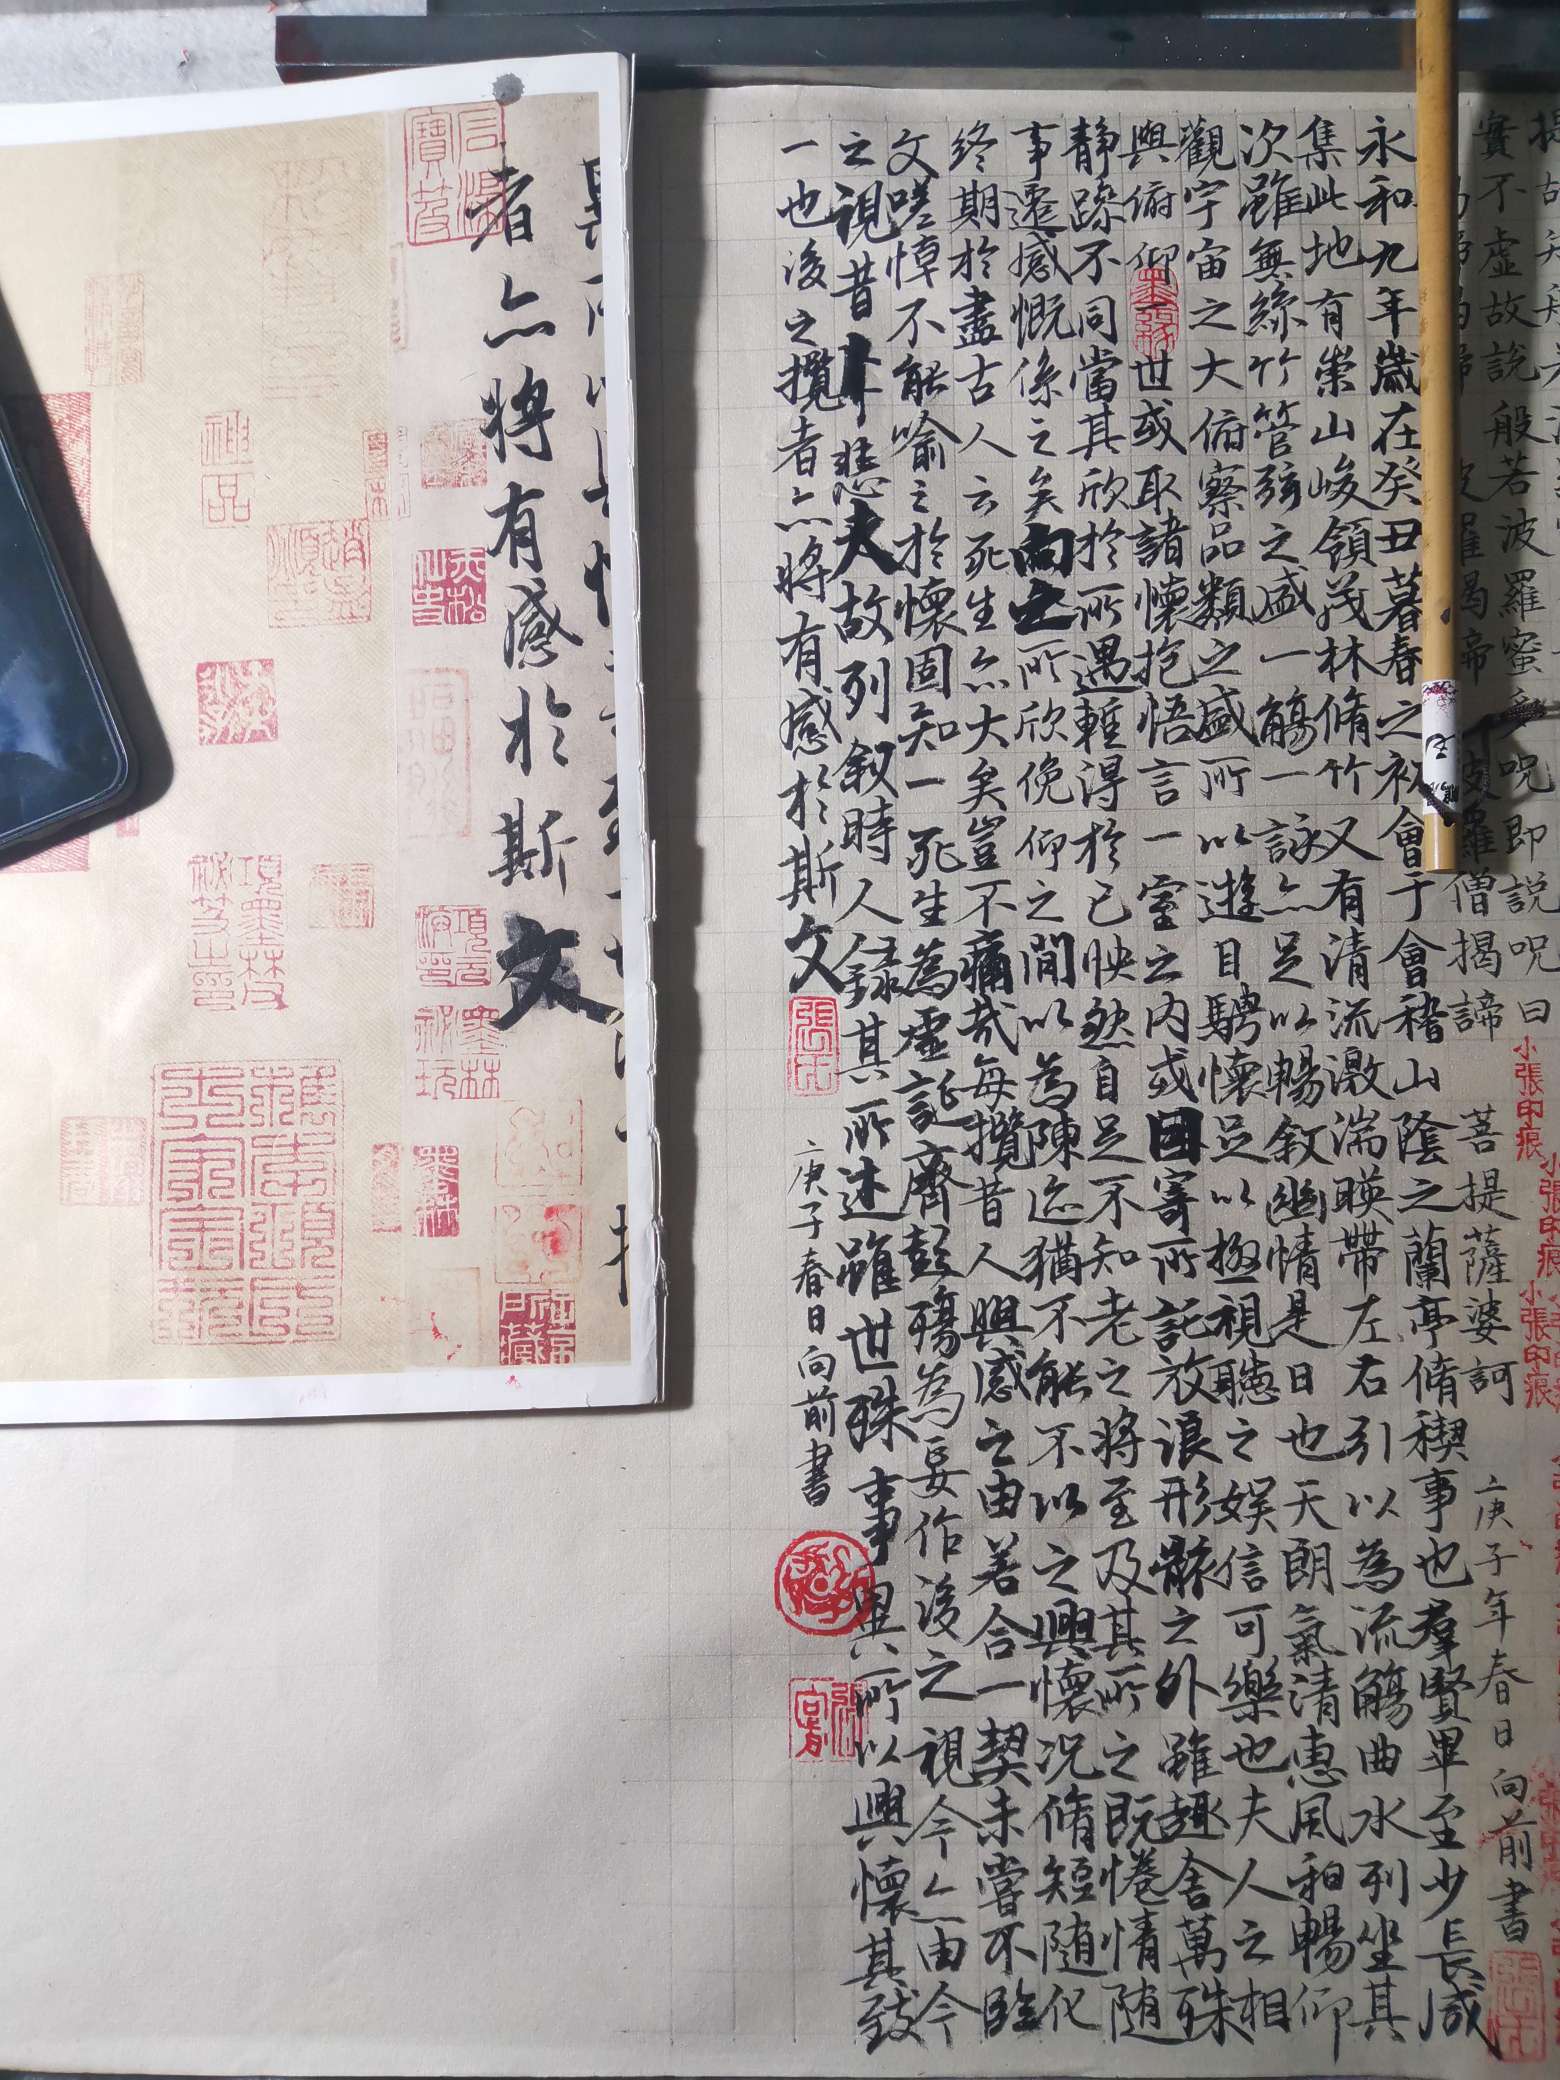 實不虛故說般若波羅蜜多呪即說呪曰
羅揭帝 波羅僧揭諦 菩提薩婆訶 庚子年春日向前書
小張印痕
小張印痕
小張印痕
永和九年歲在癸丑暮春之初會于會稽山陰之蘭亭脩稧事也羣賢畢至少長咸
集此地有崇山峻領茂林脩竹又有清流激湍暎帶左右引以為流觴曲水列坐其
次雖無絲竹管弦之盛一觴一詠亦足以暢敘幽情是日也天朗氣清惠風和暢仰
觀宇宙之大俯察品類之盛所以遊目騁懷足以極視聽之娛信可樂也夫人之相
與俯仰一世或取諸懷抱悟言一室之內或因寄所託放浪形骸之外雖趣舍萬殊
靜躁不同當其欣於所遇暫得於己怏然自足不知老之將至及其所之既惓情隨
事遷感慨係之矣向之所欣俛仰之閒以為陳迹猶不能不以之興懷況脩短隨化
終期於盡古人云死生亦大矣豈不痛哉每攬昔人興感之由若合一契未嘗不臨
文嗟悼不能喻之於懷固知一死生為虛誕齊彭殤為妄作後之視今亦由今
之視昔悲夫故列敘時人錄其所述雖世殊事異所以興懷其致
一也後之攬者亦將有感於斯文
庚子春日向前書
者亦將有感於斯文
神品